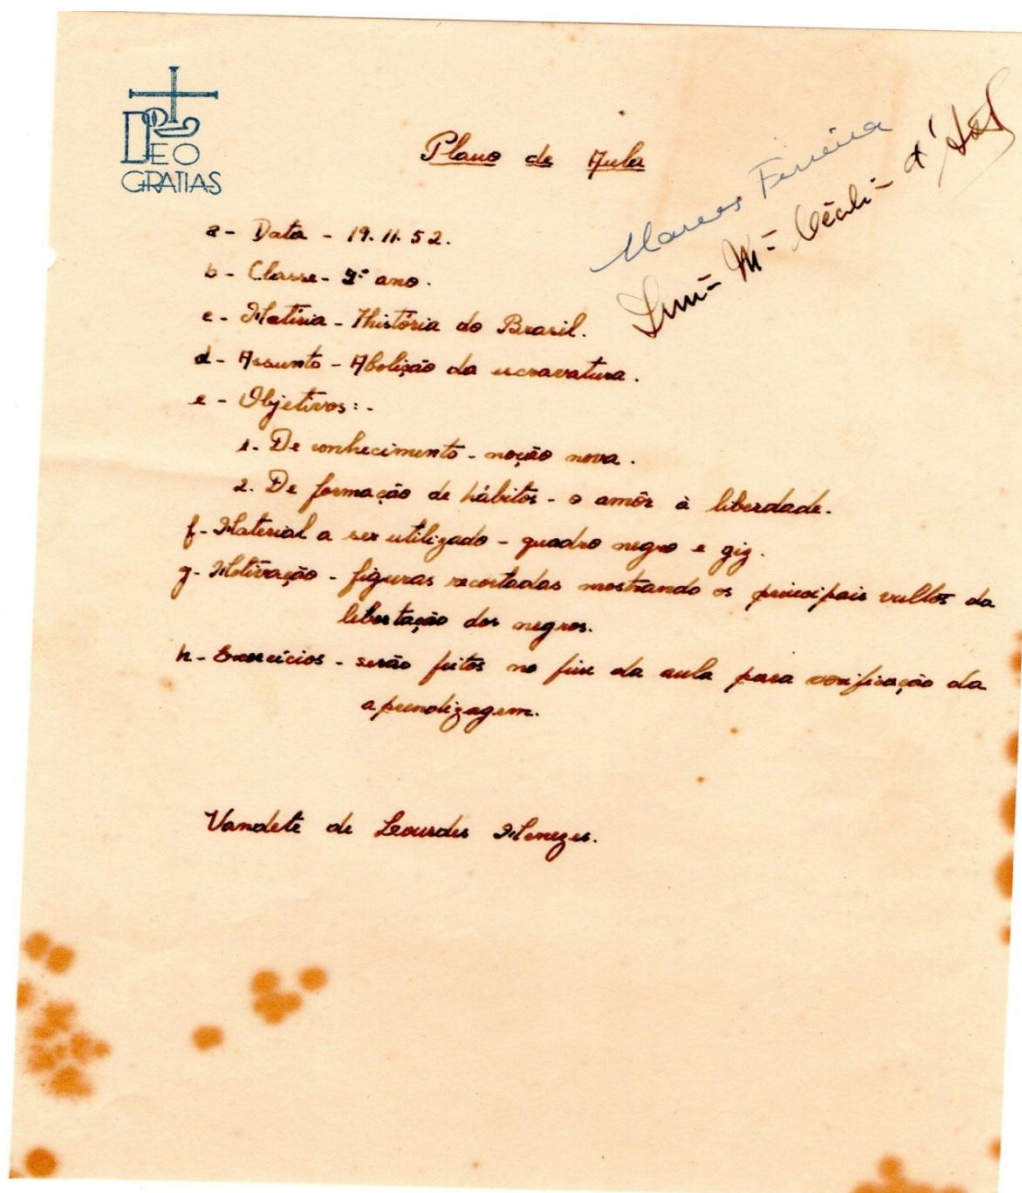 DEO
GRATIAS
Plano de Aula
Ferreira
Mª
a - Data - 19.11.52.
b - Classe - ano.
c - Matéria - História do Brasil.
d - Assunto - Abolição da escravatura.
e - Objetivos: -
1. De conhecimento - noção nova.
2. De formação de hábitos - o amôr à liberdade.
f - Material a ser utilizado - quadro negro e giz.
g. Motivação - figuras recortadas mostrando os principais vultos da
libertação dos negros.
h - Exercícios - serão feitos no fim da aula para verificação da
aprendizagem.
Vandete de Lourdes Menezes.